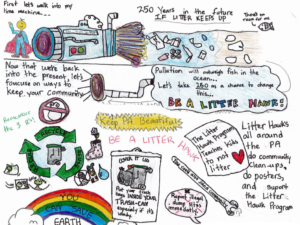 First let's walk into my
time machine...
250 Years in the future
IF LITTER KEEPS UP
Now that we're back
into the present, let's
increase on ways to
keep your community
Pollution will outweigh fish in the
ocean...
Let's take
as a chance to change
this...
BE A LITTER HAWK!
Remember
the 3 R's!
Keep PA Beautiful
BE A LITTER HAWK
RECYCLE
COVER IT UP
Put your trash
bags INSIDE YOUR
TRASH-CAN
especially if it's
windy
The Litter
Hawk Program
Teaches kids
to not
litter
Report illegal
dump sites
immediately!
Litter Hawks
all around
the PA
do community
clean ups,
do posters,
and support
the Litter
Hawk Program
YOU CAN SAVE
EARTH